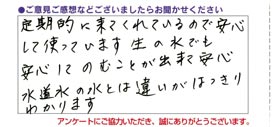 ●ご意見ご感想などございましたらお聞かせください
定期的に来てくれているので安心
して使っています 生の水でも
安心してのむことが出来て安心
水道水の水とは違いがはっきり
わかります
アンケートにご協力いただき、誠にありがとうございます。